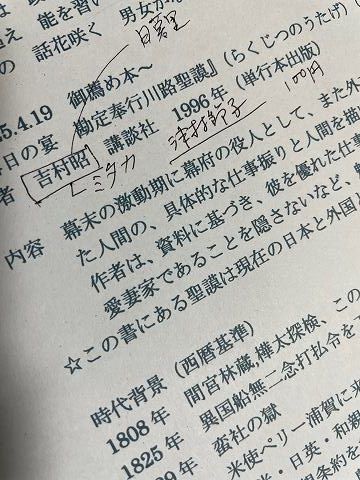 能を習い
男女が
話花咲く
日暮里
5.4.19 御薦め本～
日の宴 (らくじつのうたげ)
勘定奉行川路聖謨
者 吉村昭 講談社 1996年 (単行本出版)
津村節子
100円
ミタカ
内容 幕末の激動期に幕府の役人として、また外
た人間の、具体的な仕事振りと人間を描
作者は、資料に基づき、彼を優れた仕事
愛妻家であることを隠さないなど、
☆この書にある聖謨は現在の日本と外国と
時代背景 (西暦基準)
1808年 間宮林蔵,樺太探検、この
1825年 異国船無二念打払令を
39年 蛮社の獄
米使ペリー浦賀に
・日英・日和親
条約を